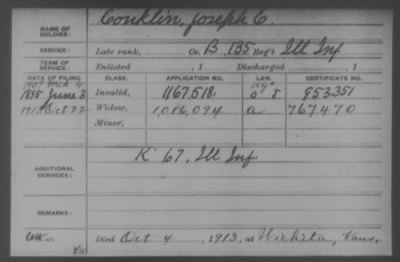 NAME OF SOLDIER: Conklin, Joseph C.
SERVICE: Late rank, Co. B, 135 Reg't Ill Inf
TERM OF SERVICE: Enlisted , 1 Discharged , 1
DATE OF FILING. CLASS. APPLICATION NO. LAW. CERTIFICATE NO.
1895 June 3 Invalid, 1167,518, 953.351
1913 Oct 22 Widow, 1,016,094 a 767470
Minor,
K 67, Ill Inf
ADDITIONAL SERVICES:
REMARKS:
Died Oct 4, 1913, at Wichita, Kans.